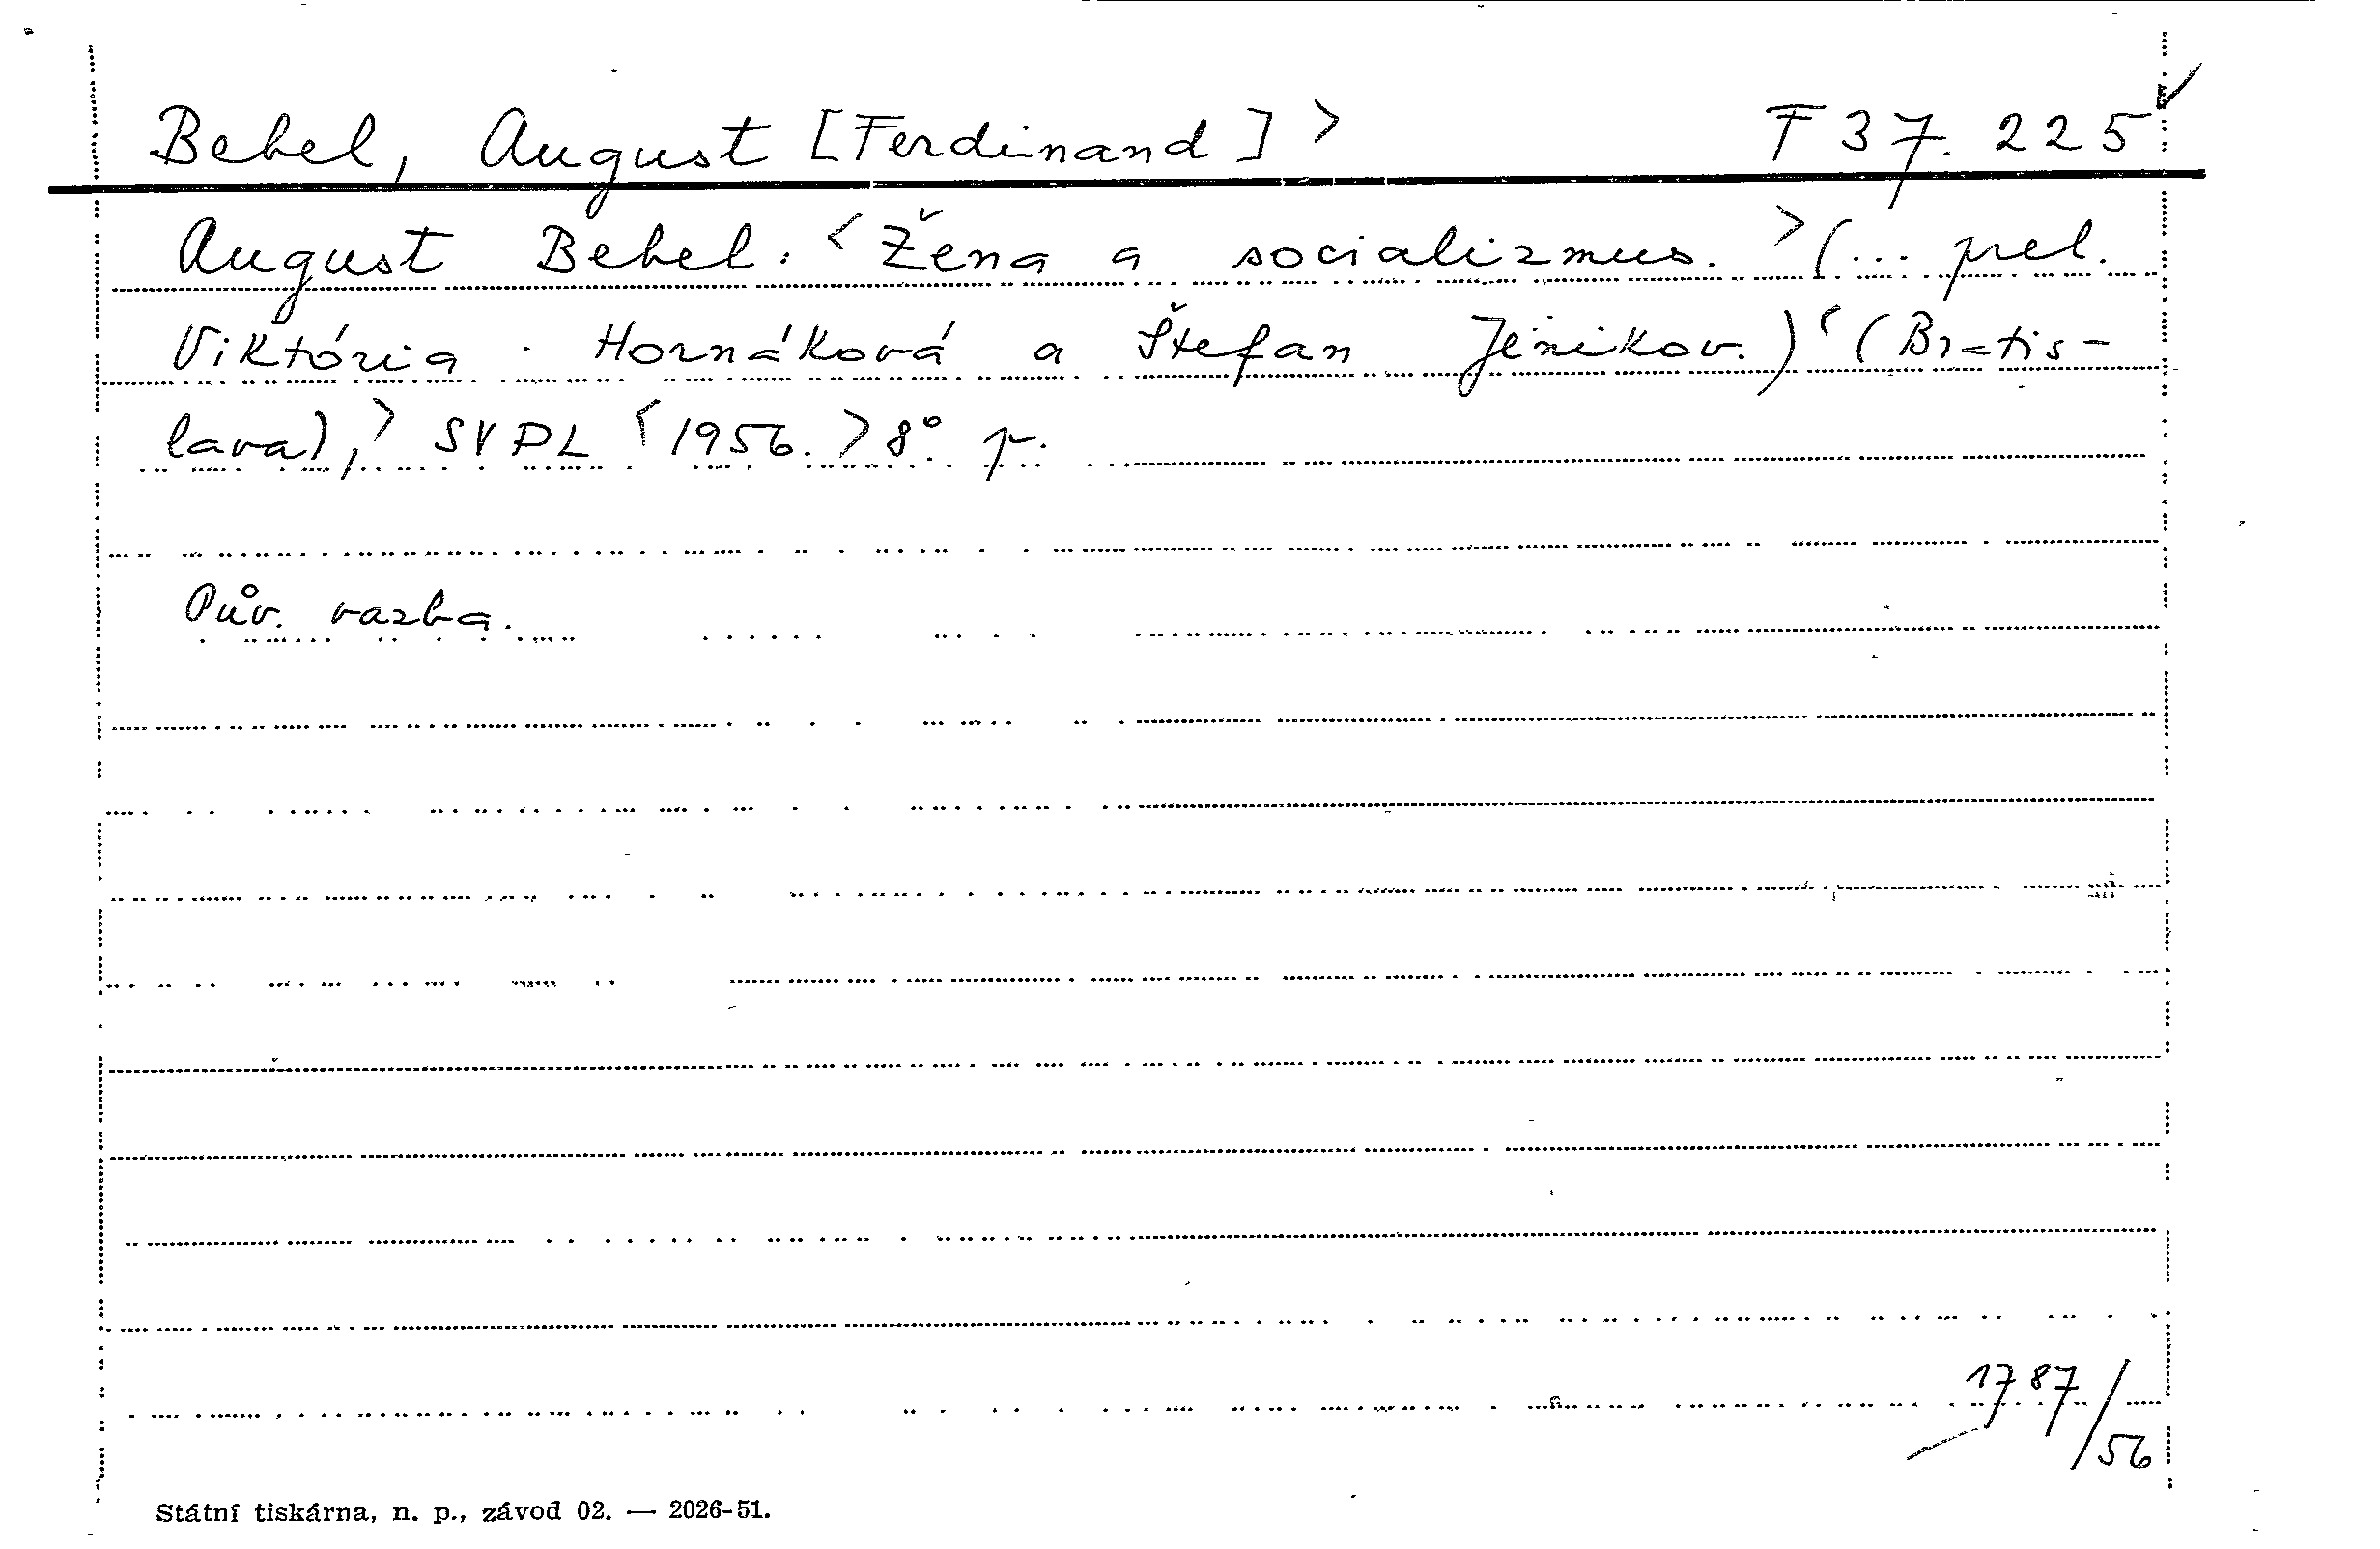 Bebel, August [Ferdinand] > F 37.225
August Bebel. <Žena a socializmus.> (... prel.
Viktória Hornáková a Štefan Jeníkov.) <(Bratis-
lava),> SVPL <1956.> 8° p.
Pův. vazba.
1787/56
Státní tiskárna, n. p., závod 02. — 2026-51.